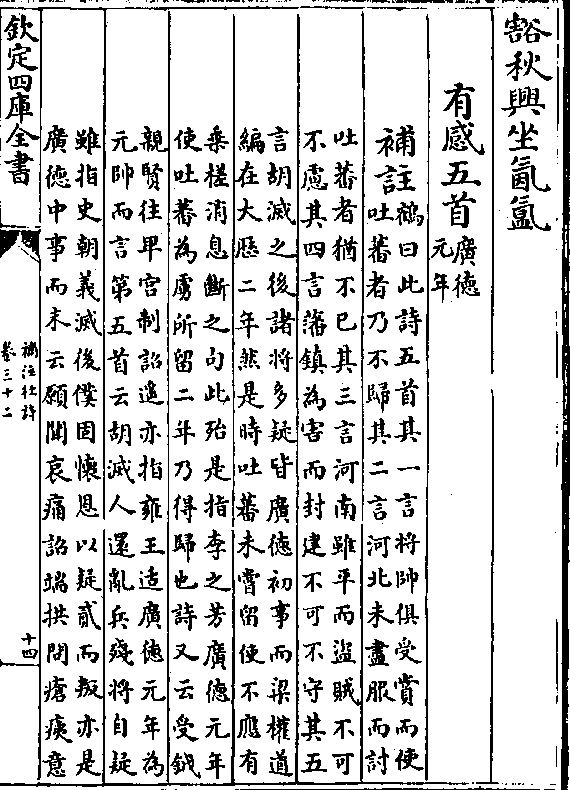 豁秋興坐氤氳
有感五首
廣德
元年
補註
鶴曰此詩五首其一言將帥俱受賞而使
吐蕃者乃不歸其二言河北未盡服而討
吐蕃者猶不已其三言河南雖平而盜賊不可
不慮其四言藩鎮為害而封建不可不守其五
言胡滅之後諸將多疑皆廣德初事而梁權道
編在大厯二年然是時吐蕃未嘗留使不應有
乗槎消息斷之句此殆是指李之芳廣德元年
使吐蕃為虜所留二年乃得歸也詩又云受鉞
親賢往卑宫制詔遥亦指雍王适廣德元年為
元帥而言第五首云胡滅人還亂兵殘將自疑
雖指史朝義滅後僕固懷恩以疑貳而叛亦是
廣德中事而末云願聞哀痛詔端拱問瘡痍意
欽定四庫全書
補注杜詩
卷三十二
十四